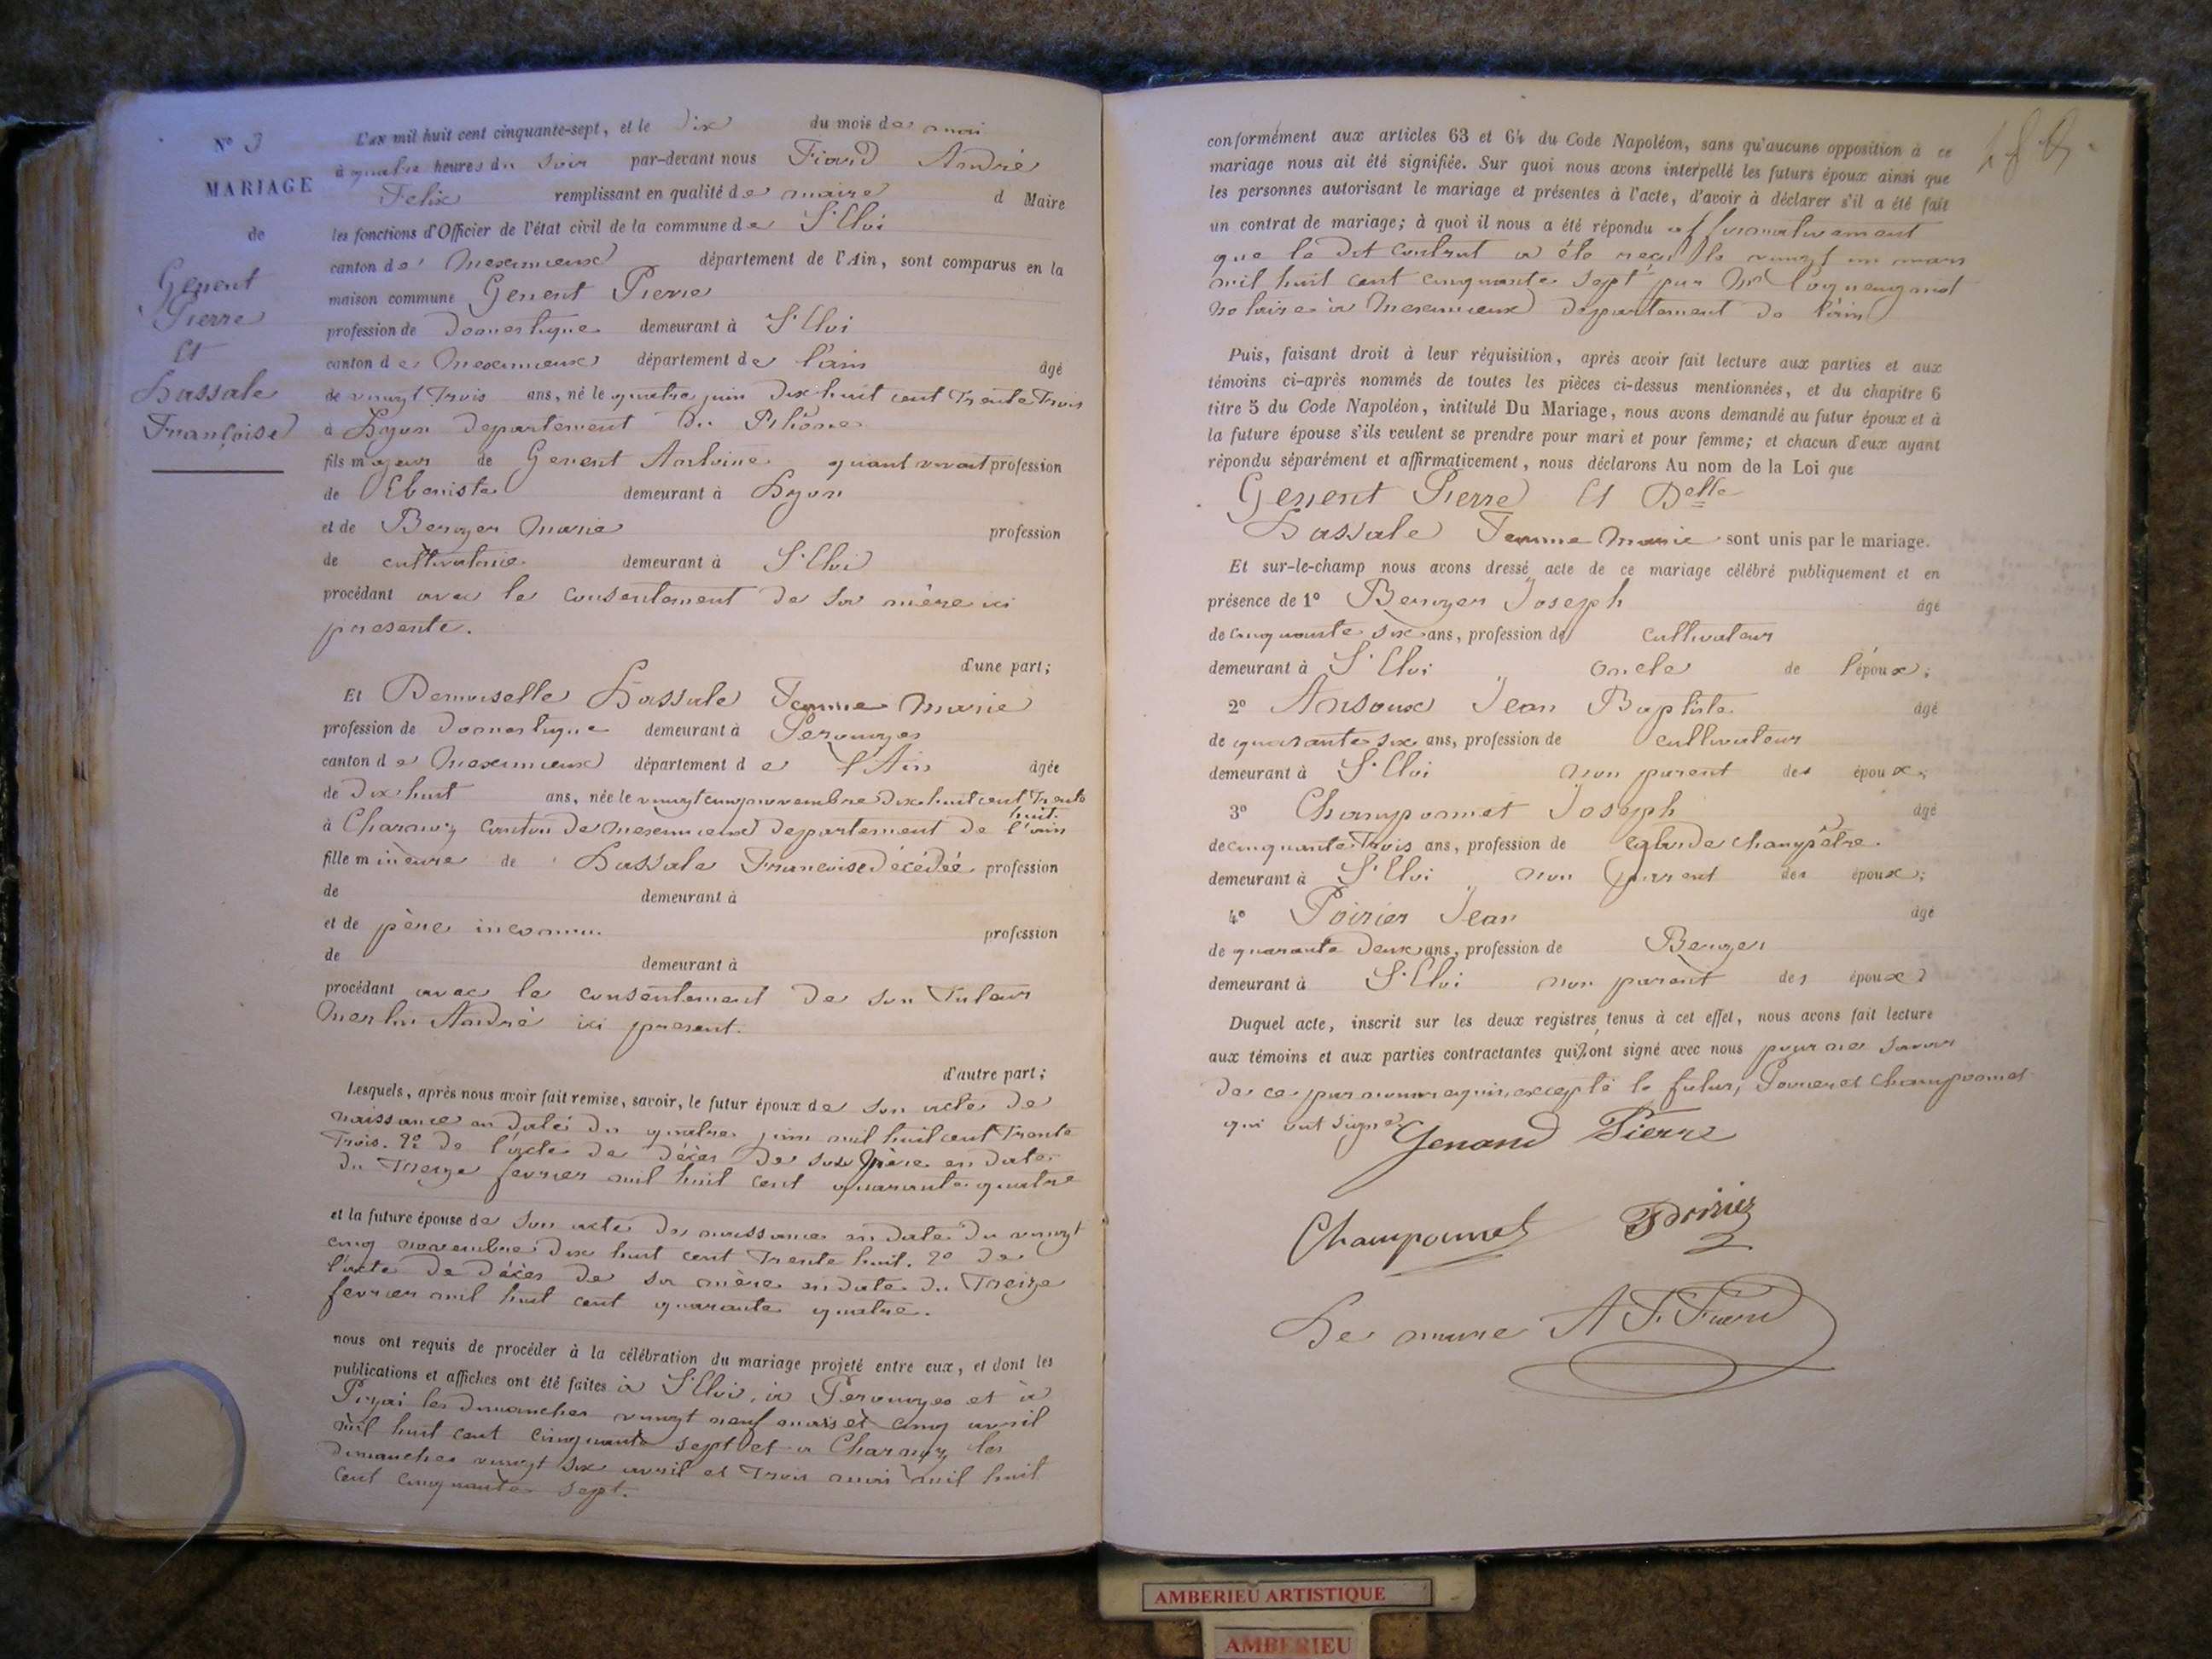 N° 3
MARIAGE
de
Genent
Pierre
Et
Lassale
Françoise
L'an mil huit cent cinquante-sept, et le Dix du mois de mai
à quatre heures du Soir par-devant nous Fiard André
Felix remplissant en qualité de maire d Maire
les fonctions d'Officier de l'état civil de la commune de St Eloi
canton de Meximieux département de l'Ain, sont comparus en la
maison commune Genent Pierre
profession de Domestique demeurant à St Eloi
canton de Meximieux département de l'ain âgé
de vingt Trois ans, né le quatre juin Dix huit cent Trente Trois
à Lyon Departement Du Rhône
fils majeur de Genent Antoine quant vivait profession
de Ebeniste demeurant à Lyon
et de Beroyer Marie profession
de cultivatrice demeurant à St Eloi
procédant avec le consentement De sa mère ici
presente.
d'une part;
Et Demoiselle Lassale Femme Marie
profession de Domestique demeurant à Perouges
canton de Meximieux département de l'Ain âgée
de Dix huit ans, née le vingt cinq novembre Dix huit cent Trente
huit
à Charnoz canton de Meximieux departement de l'ain
fille mineure de Lassale Francoise décédée profession
de demeurant à
et de père inconnu profession
de demeurant à
procédant avec le consentement De son Tuteur
Merlin André ici present.
d'autre part;
Lesquels, après nous avoir fait remise, savoir, le futur époux de son acte de
naissance en date du quatre juin mil huit cent Trente
Trois. 2° de l'acte de décès de son père en date
du Treize fevrier mil huit cent quarante quatre
et la future épouse de son acte de naissance en date du vingt
cinq novembre Dix huit cent Trente huit. 2° de
l'acte de décès de sa mère en date du Treize
fevrier mil huit cent quarante quatre.
nous ont requis de procéder à la célébration du mariage projeté entre eux, et dont les
publications et affiches ont été faites à St Eloi, à Perouges et à
les dimanches vingt neuf mars et cinq avril
mil huit cent cinquante sept et a Charnoz les
dimanches vingt six avril et trois mai mil huit
cent cinquante sept.
conformément aux articles 63 et 64 du Code Napoléon, sans qu'aucune opposition à ce
mariage nous ait été signifiée. Sur quoi nous avons interpellé les futurs époux ainsi que
les personnes autorisant le mariage et présentes à l'acte, d'avoir à déclarer s'il a été fait
un contrat de mariage; à quoi il nous a été répondu affirmativement
que le dit contrat a été reçu le vingt un mars
mil huit cent cinquante sept par Me
Notaire à Meximieux departement de l'ain
Puis, faisant droit à leur réquisition, après avoir fait lecture aux parties et aux
témoins ci-après nommés de toutes les pièces ci-dessus mentionnées, et du chapitre 6
titre 5 du Code Napoléon, intitulé Du Mariage, nous avons demandé au futur époux et à
la future épouse s'ils veulent se prendre pour mari et pour femme; et chacun d'eux ayant
répondu séparément et affirmativement, nous déclarons Au nom de la Loi que
Genent Pierre Et Delle
Lassale Femme Marie sont unis par le mariage.
Et sur-le-champ nous avons dressé acte de ce mariage célébré publiquement et en
présence de 1° Beroyer Joseph âgé
de cinquante six ans, profession de cultivateur
demeurant à St Eloi oncle de l'époux;
2° Ansoux Jean Baptiste âgé
de quarante six ans, profession de cultivateur
demeurant à St Eloi non parent des époux;
3° Champonnet Joseph âgé
de cinquante Trois ans, profession de garde champêtre
demeurant à St Eloi non parent des époux;
4° Poirier Jean âgé
de quarante Deux ans, profession de Berger
demeurant à St Eloi non parent des époux
Duquel acte, inscrit sur les deux registres tenus à cet effet, nous avons fait lecture
aux témoins et aux parties contractantes qui ont signé avec nous pour ne savoir
de ce par nous requis, excepté le futur, Poirier et Champonnet
qui ont signé
Genand Pierre
Champonnet Poirier
Le maire A F Fiard
AMBERIEU ARTISTIQUE
AMBERIEU